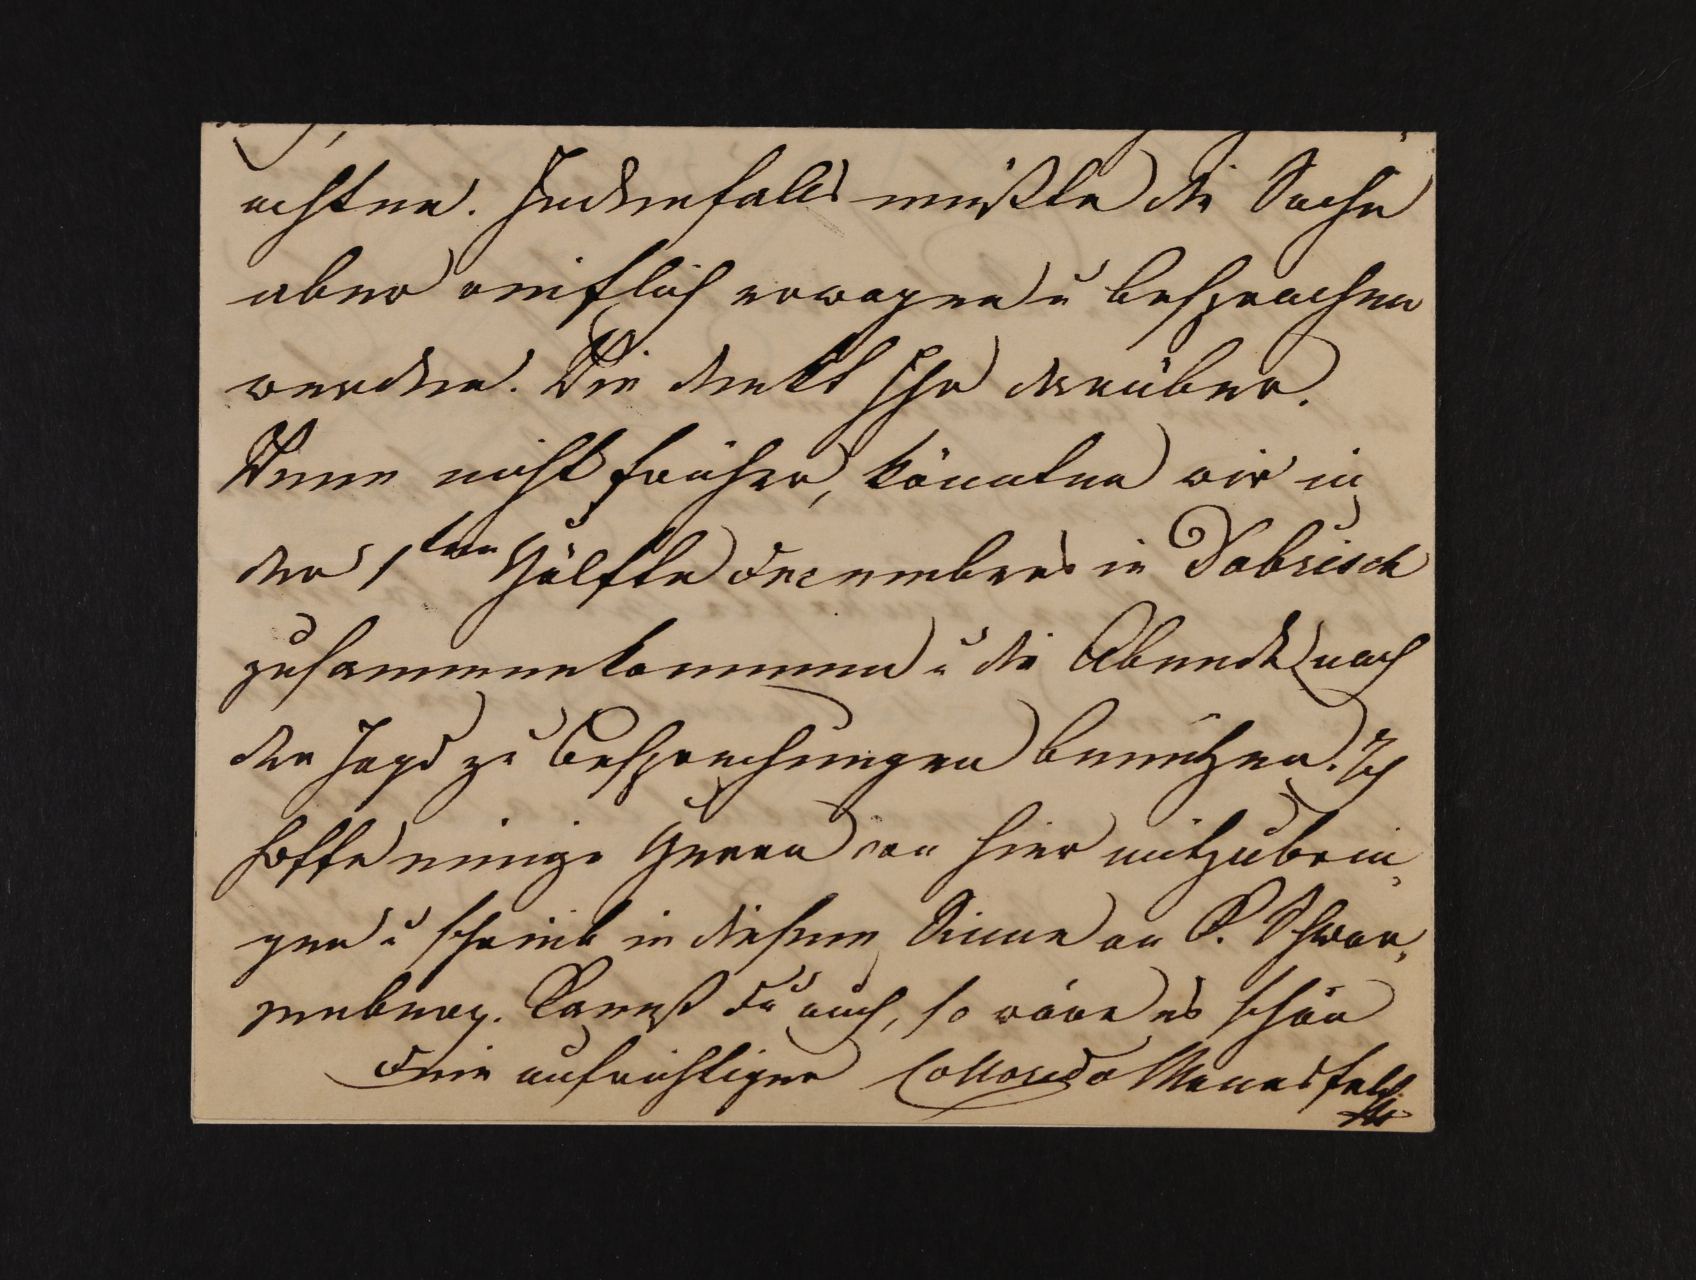 achten. Jedenfalls müßte die Sache
aber reiflich erwogen u besprochen
werden. Wie denkt Ihr darüber.
Wenn nicht früher, könnten wir in
der 1ten Hälfte Decembers in Dobrisch
zusammenkommen u die Abende nach
der Jagd zu Besprechungen benützen. Ich
hoffe einige Herren von hier mitzubrin-
gen u schrieb in diesem Sinne an C. Schwar-
zenberg. Kannst Du auch, so wäre es schön
Dein aufrichtiger Colloredo Mannsfeld